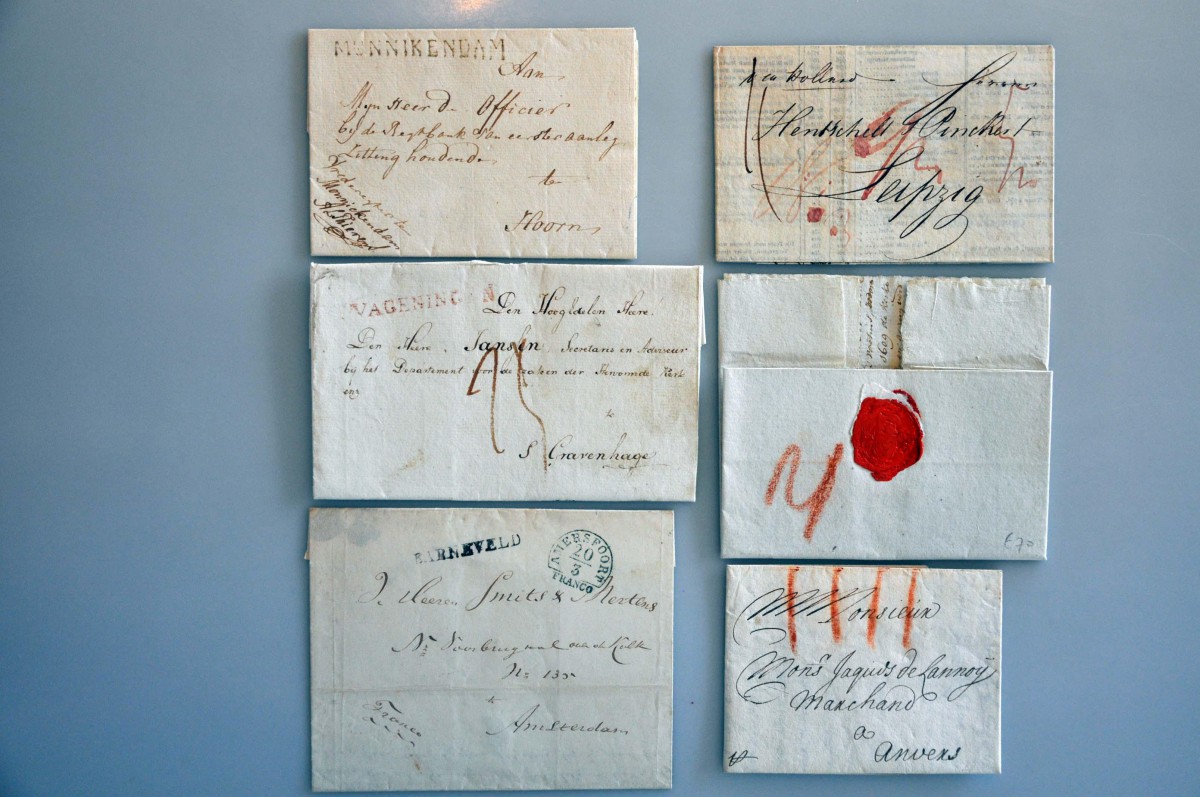 MONNIKENDAM
Aan
Mijn Heer de Officier
bij de Regtbank van eerster aanleg
Zitting houdende
te
Hoorn
Monnickendam
WAGENINGEN
Den HoogEdelen Heere
Den Heere Jansen, Secretaris en Adviseur
bij het Departement voor de zaken der Hervormde Kerk
enz
te
S Gravenhage
BARNEVELD
AMERSFOORT
20
3
FRANCO
De Heeren Smits & Mertens
Nz Voorburgwal aan de Kolk
No 135
te
Amsterdam
Franco
Holland
Hentschel & Pinckert
Leipzig
€70
Monsieur
Monsr Jaques de Lannoÿ
Marchand
a
Anvers